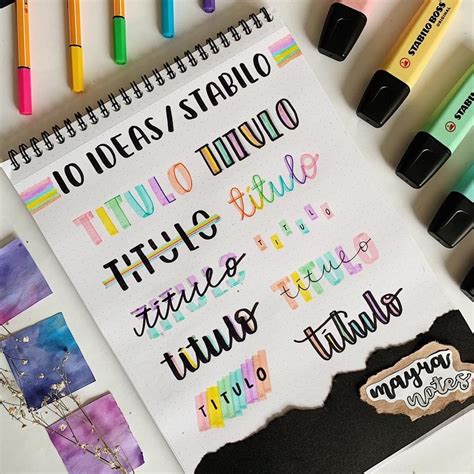 10 IDEAS/STABILO
TITULO
TITULO
TITULO
título
TITULO
TITULO
título
TITULO
título
titulo
título
TITULO
mayra
notes
STABILO BOSS
ORIGINAL
STABILO BOSS